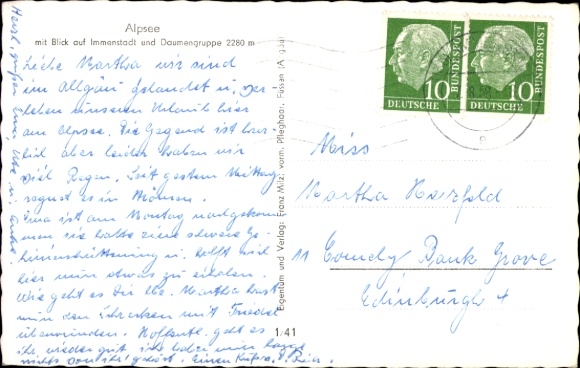 Alpsee
mit Blick auf Immenstadt und Daumengruppe 2280 m
Liebe Martha wir sind
im Allgäu gelandet u. ver
leben unseren Urlaub hier
am Alpsee. Die Gegend ist herr-
lich aber leider haben wir
viel Regen. Seit gestern Mittag
regnet es in
ist am Montag nachgekom
men sie hatte eine schwere Ge-
hirnerschütterung u. hofft sich
hier nun etwas zu erholen.
Wie geht es Dir lb. Martha hast
nun den Schrecken mit
überwunden. Hoffentl. geht es
ihr wieder gut ich habe nun lange
nichts von ihr gehört. Einen
Eigentum und Verlag: Franz Milz, vorm. Pfleghaar, Füssen (Allgäu)
1/41
10
DEUTSCHE BUNDESPOST
10
DEUTSCHE BUNDESPOST
Miss
Martha Herzfeld
11 Comely Bank Grove
Edinburgh 4